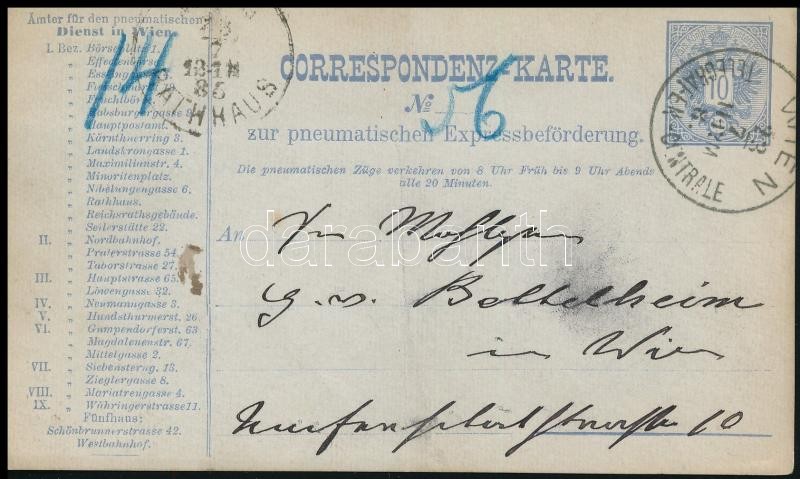 Ämter für den pneumatischen
Dienst in Wien.
I. Bez. Börseplatz 1.
" Effectenbörse
" Fruchtbörse
" Habsburgergasse 9
" Hauptpostamt.
" Kärnthnerring 3.
" Landskrongasse 1.
" Maximilianstr. 4.
" Minoritenplatz.
" Nibelungengasse 6.
" Rathhaus.
" Reichsrathsgebäude.
" Seilerstätte 22.
II. Nordbahnhof.
" Praterstrasse 54.
" Taborstrasse 27.
III. Hauptstrasse 65.
" Löwengasse 32.
IV. Neumanngasse 3.
V. Hundsthurmerst. 26
VI. Gumpendorferst. 63
" Magdalenenstr. 67.
" Mittelgasse 2.
VII. Siebensterng. 13.
" Zieglergasse 8.
VIII. Mariatreugasse 4.
IX. Währingerstrasse 11.
Fünfhaus:
Schönbrunnerstrasse 42.
Westbahnhof.
14
RATHHAUS
CORRESPONDENZ-KARTE.
No 56
zur pneumatischen Expressbeförderung.
Die pneumatischen Züge verkehren von 8 Uhr Früh bis 9 Uhr Abends
alle 20 Minuten.
10
WIEN
TELEGRAFEN-CENTRALE
An
G. v. Bettelheim
in Wien
10
darabanth